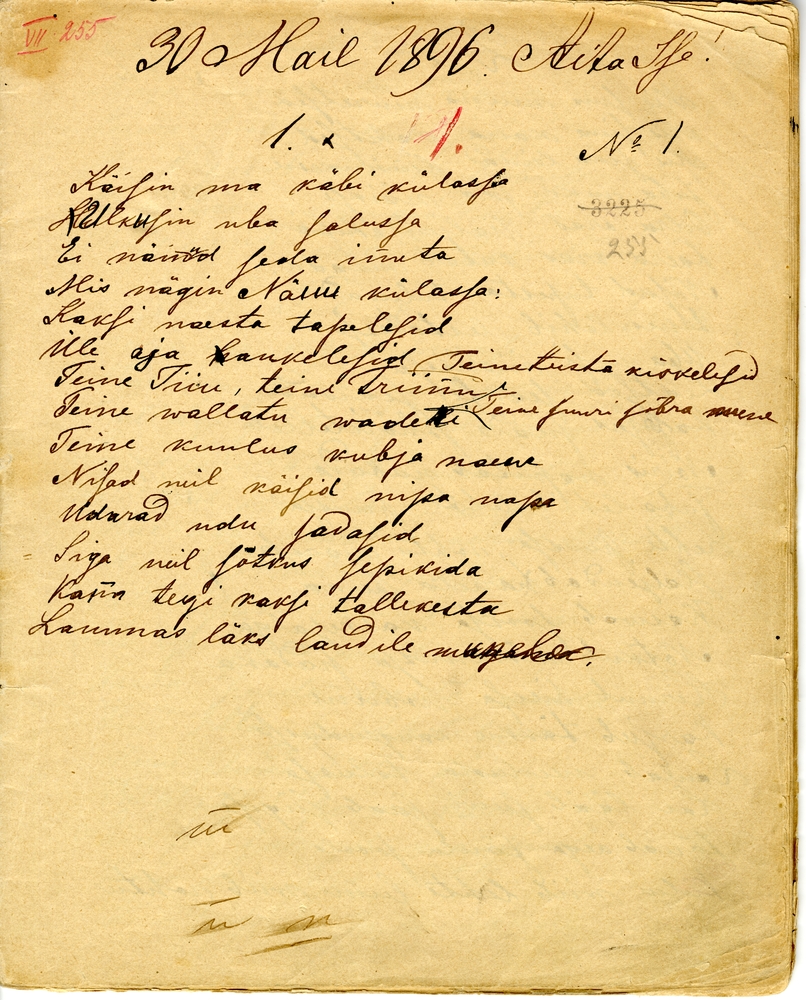 VII 255
30 Mail 1896. Aita Isse!
1. x 1.
No 1.
3225
255
Käisin ma käbi külassa
Hulkusin uba salussa
Ei näinud seda imeta
Mis nägin Näuu külassa:
Kaksi naesta tapelesid
Üle aja kaukelesid, Teineteista kiskelesid
Teine Tiiu, teine Triinu, Teine suuri sobra naene
Teine wallatu wadeki
Teine kuulus kubja naene
Nisad neil käisid nipa napa
Udarad udu sadasid
Siga neil sõtkus sepikida
Kana tegi kaksi tallekesta
Lammas läks laudile